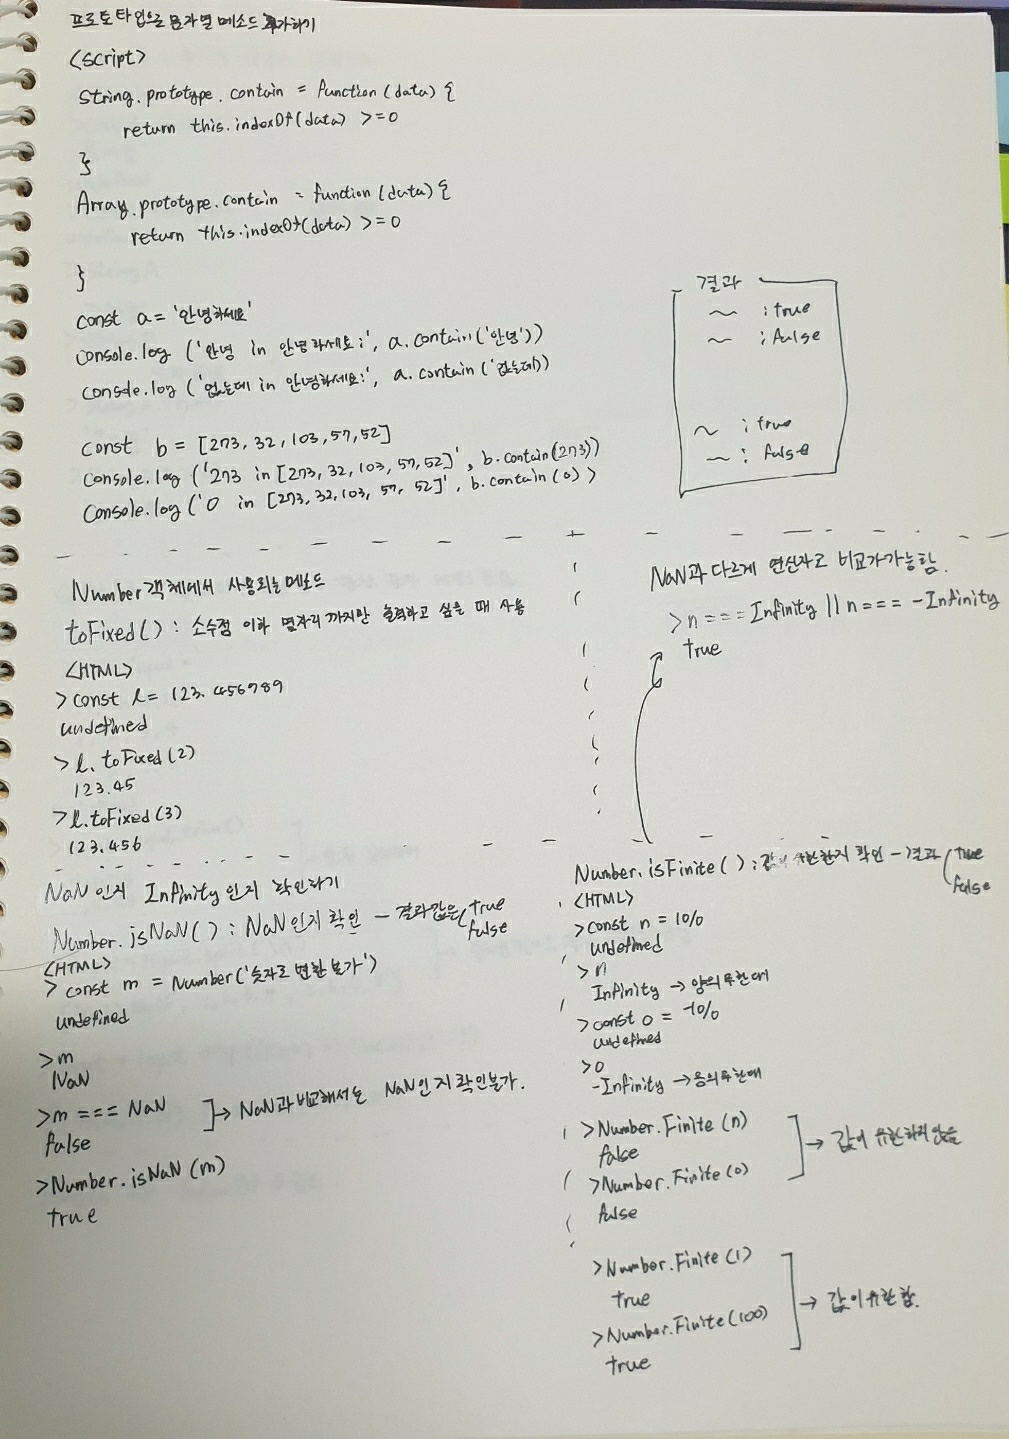 프로토타입으로 문자열 메소드 추가하기
<script>
String.prototype.contain = function(data) {
return this.indexOf(data) >=0
}
Array.prototype.contain = function(data) {
return this.indexOf(data) >=0
}
const a = '안녕하세요'
console.log ('안녕 in 안녕하세요:', a.contain('안녕'))
console.log ('없는데 in 안녕하세요:', a.contain('없는데))
const b = [273, 32, 103, 57, 52]
Console.log ('273 in [273, 32, 103, 57, 52]', b.contain(273))
Console.log ('0 in [273, 32, 103, 57, 52]', b.contain(0) >
결과
~ : true
~ : false
~ : true
~ : false
Number객체에서 사용되는 메소드
toFixed() : 소수점 이하 몇자리 까지만 출력하고 싶을 때 사용
<HTML>
> const l = 123.456789
undefined
> l.toFixed(2)
123.45
> l.toFixed(3)
123.456
NaN과 다르게 연산자로 비교가 가능함.
> n === Infinity || n === -Infinity
true
NaN 인지 Infinity인지 확인하기
Number.isNaN() : NaN인지 확인 - 결과값은 true
false
<HTML>
> const m = Number('숫자로 변환 불가')
undefined
> m
NaN
> m === NaN → NaN과 비교해서는 NaN인지 확인불가.
false
> Number.isNaN(m)
true
Number.isFinite() : 값이 유한한지 확인 - 결과 true
false
<HTML>
> const n = 10/0
undefined
> n
Infinity → 양의 무한대
> const o = -10/0
undefined
> o
-Infinity → 음의 무한대
> Number.Finite(n)
false → 값이 유한하지 않음
> Number.Finite(o)
false
> Number.Finite(1)
true → 값이 유한함.
> Number.Finite(100)
true